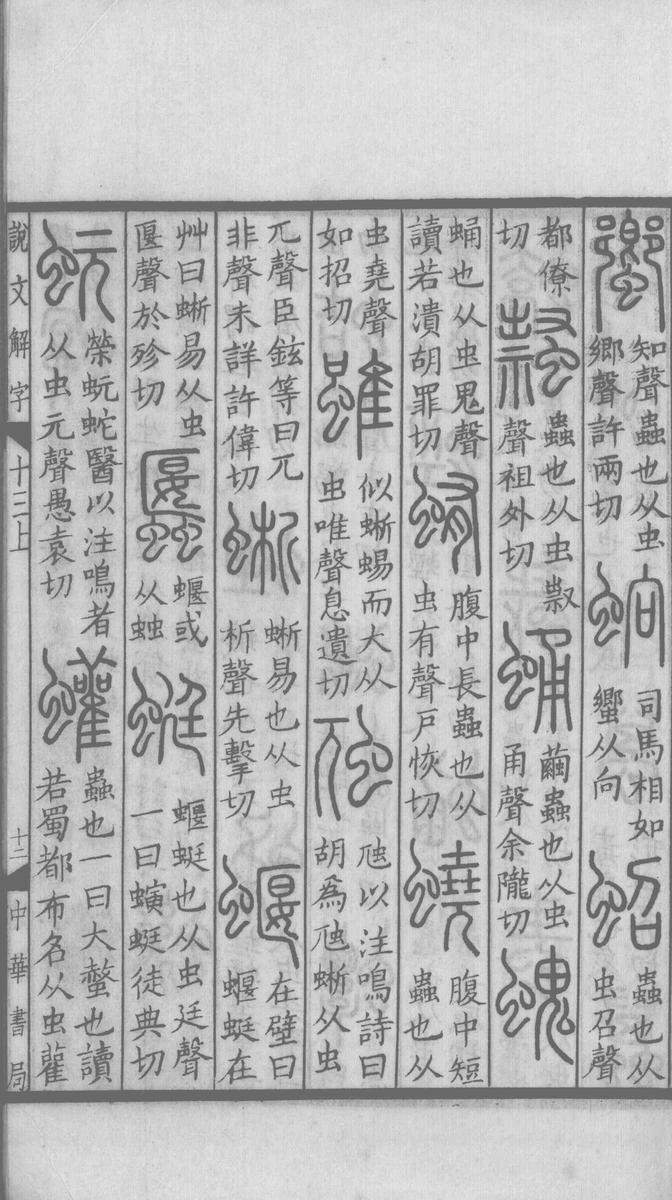 蠁
知聲蟲也从虫
鄉聲許兩切
蚃
司馬相如
蠁从向
蛁
蟲也从
虫召聲
都僚
切
蟲也从虫㕢
聲祖外切
蛹
繭蟲也从虫
甬聲余隴切
螝
蛹也从虫鬼聲
讀若潰胡罪切
蛕
腹中長蟲也从
虫有聲戶恢切
蟯
腹中短
蟲也从
虫堯聲
如招切
雖
似蜥蜴而大从
虫唯聲息遺切
虺
虺以注鳴詩曰
胡爲虺蜥从虫
兀聲臣鉉等曰兀
非聲未詳許偉切
蜥
蜥易也从虫
析聲先擊切
蝘
在壁曰
蝘蜓在
艸曰蜥易从虫
匽聲於殄切
蝘或
从䖵
蜓
蝘蜓也从虫廷聲
一曰螾蜓徒典切
蚖
榮蚖蛇醫以注鳴者
从虫元聲愚袁切
蠸
蟲也一曰大螫也讀
若蜀都布名从虫雚
說文解字
十三上
十二
中華書局